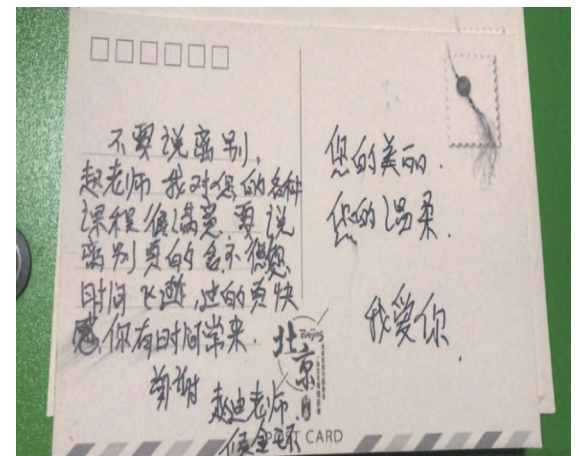 不要说离别,
赵老师 我对您的各种
课程很满意. 要说
离别真的舍不得您.
时间飞逝,过的真快
您 你有时间常来.
谢谢
赵迪老师.
您的美丽.
您的温柔.
我爱你.
北京
Beijing
CARD